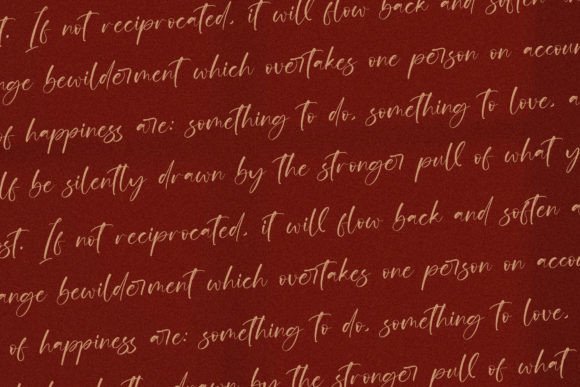 st. If not reciprocated, it will flow back and soften
ange bewilderment which overtakes one person on accoun
of happiness are: something to do, something to love, a
lf be silently drawn by the stronger pull of what y
ost. If not reciprocated, it will flow back and soften a
ange bewilderment which overtakes one person on accou
of happiness are: something to do, something to love,
be silently drawn by the stronger pull of what